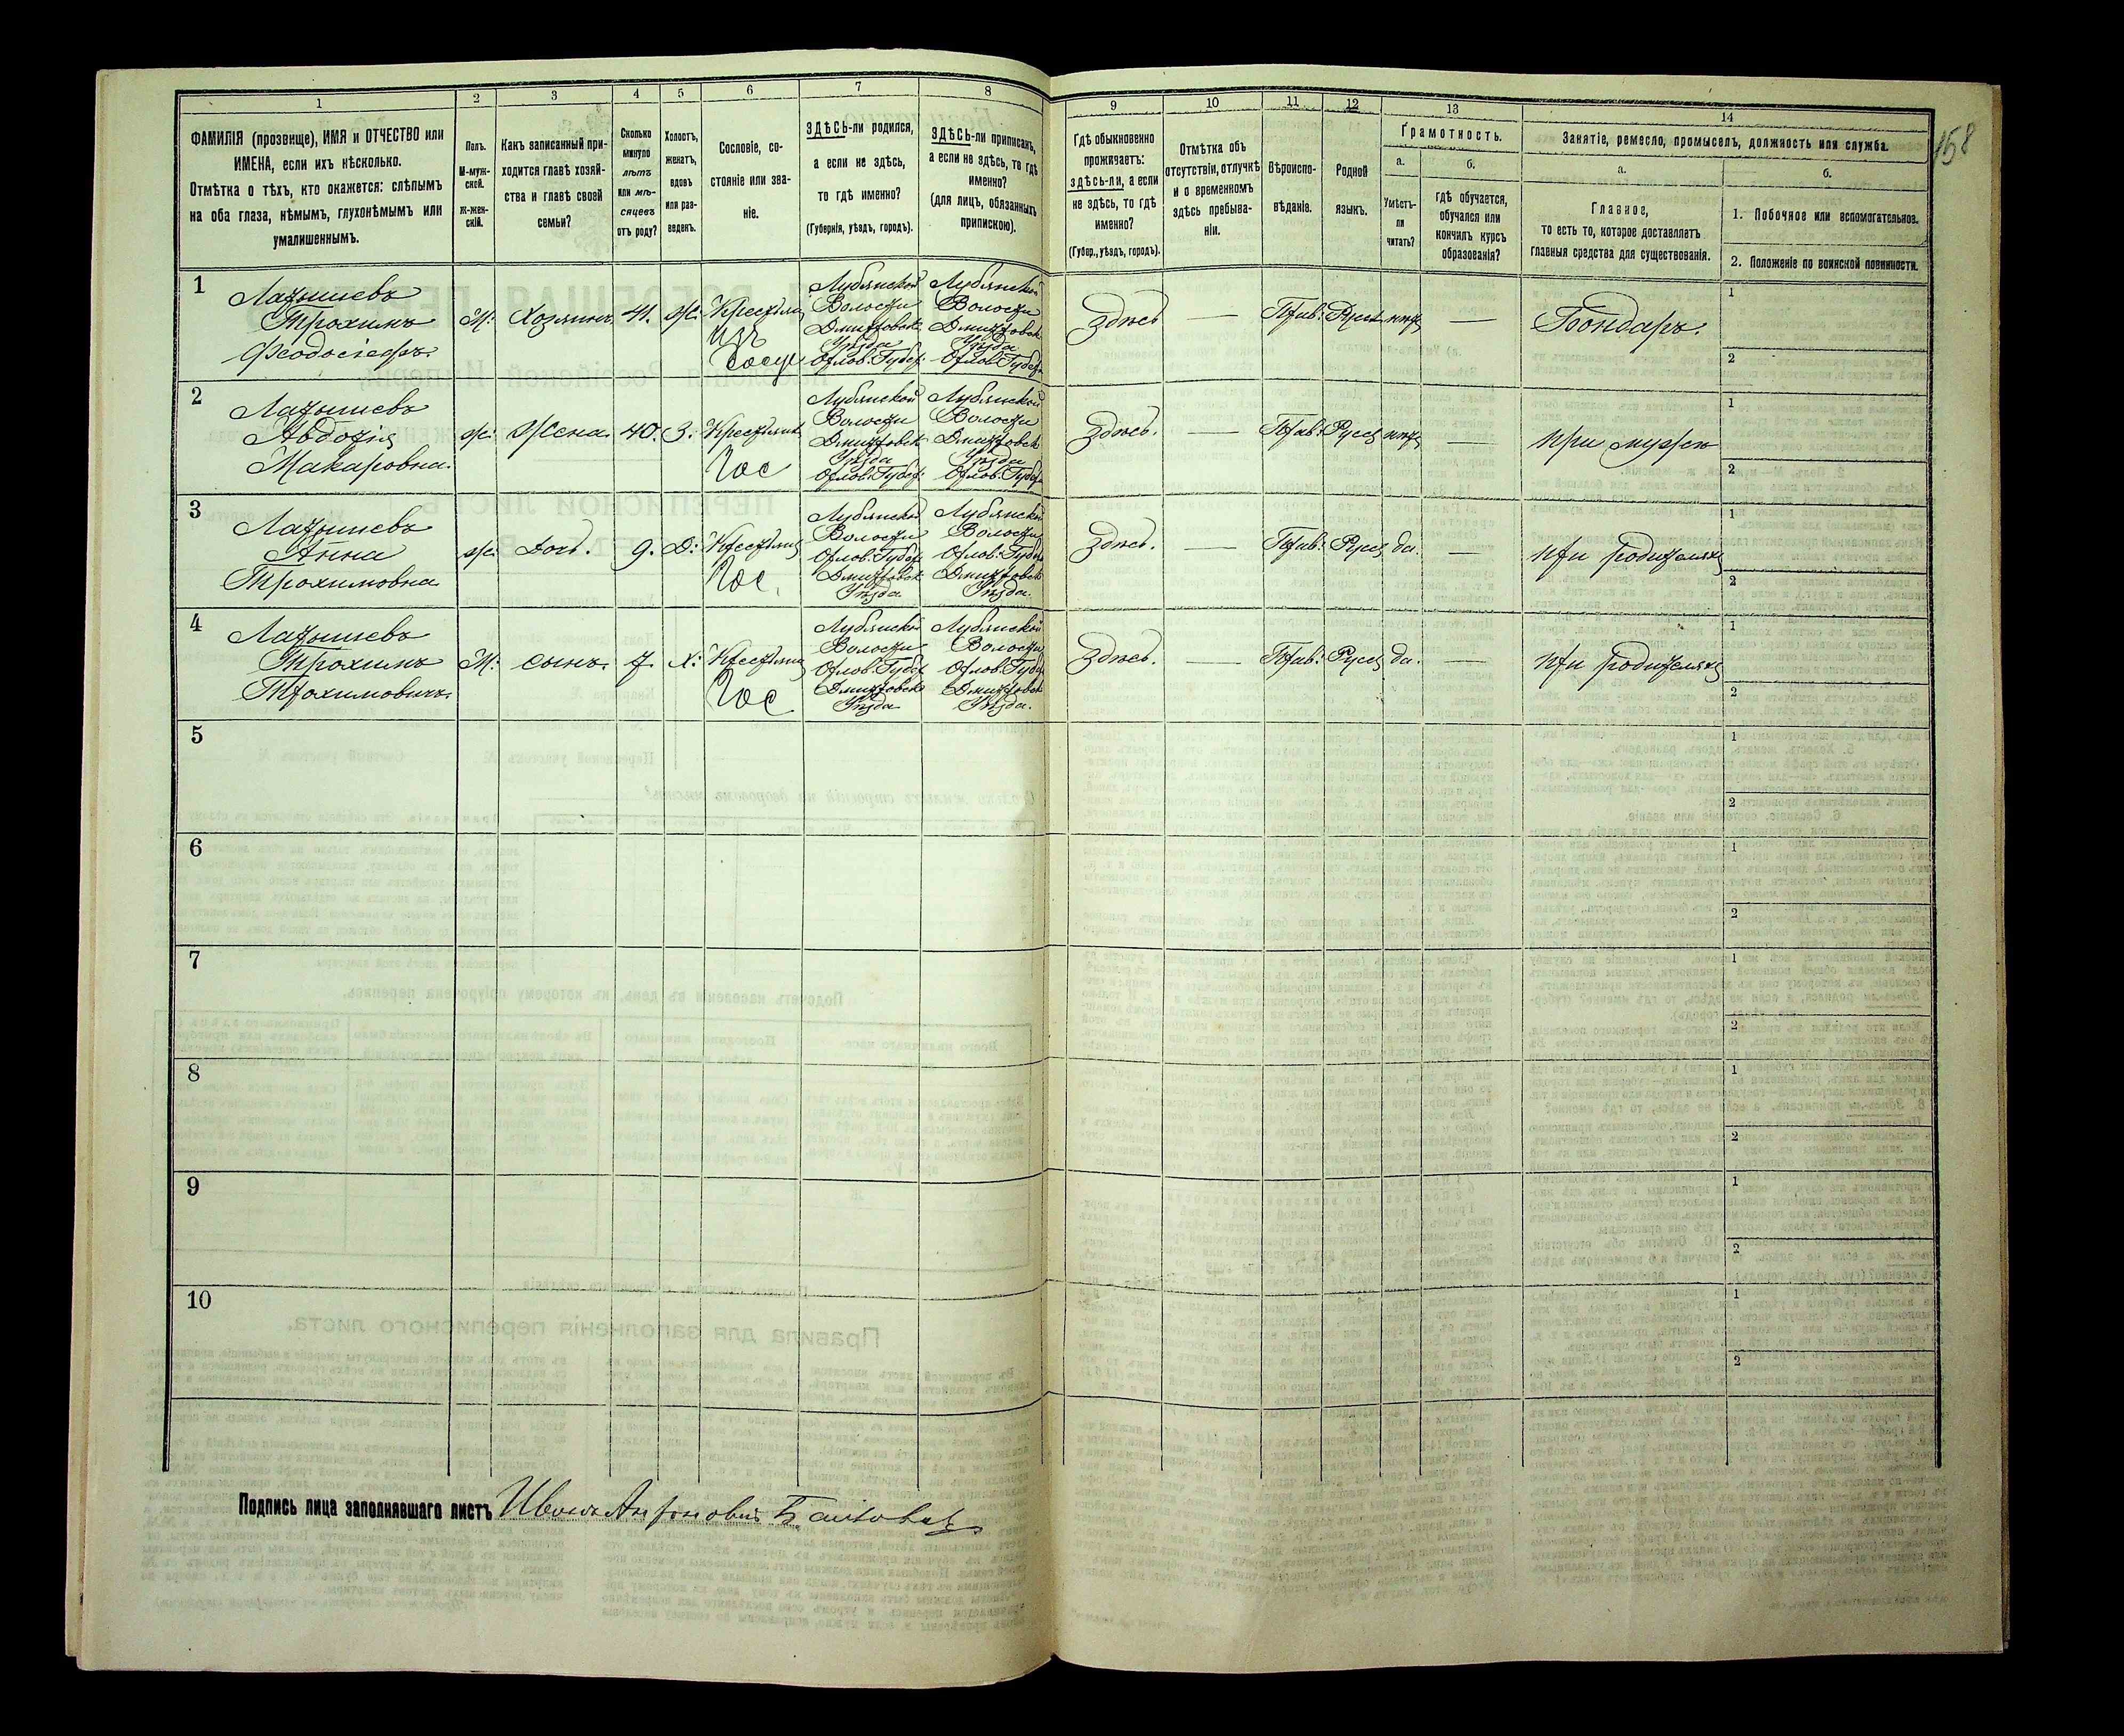 158
1 2 3 4 5 6 7 8 9 10 11 12 13 14
ФАМИЛІЯ (прозвище), ИМЯ и ОТЧЕСТВО или
ИМЕНА, если ихъ нѣсколько.
Отмѣтка о тѣхъ, кто окажется: слѣпымъ
на оба глаза, нѣмымъ, глухонѣмымъ или
умалишеннымъ.
Полъ.
М-муж-
ской.
Ж-жен-
скій.
Какъ записанный при-
ходится главѣ хозяй-
ства и главѣ своей
семьи?
Сколько
минуло
лѣтъ
или мѣ-
сяцевъ
отъ роду?
Холостъ,
женатъ,
вдовъ
или раз-
веденъ.
Сословіе, со-
стояніе или зва-
ніе.
ЗДѢСЬ-ли родился,
а если не здѣсь,
то гдѣ именно?
(Губернія, уѣздъ, городъ).
ЗДѢСЬ-ли приписанъ,
а если не здѣсь, то гдѣ
именно?
(для лицъ, обязанныхъ
припискою).
Гдѣ обыкновенно
проживаетъ:
здѣсь-ли, а если
не здѣсь, то гдѣ
именно?
(Губер., уѣздъ, городъ).
Отмѣтка объ
отсутствіи, отлучкѣ
и о временномъ
здѣсь пребыва-
ніи.
Вѣроиспо-
вѣданіе.
Родной
языкъ.
Грамотность.
а.
Умѣетъ-
ли
читать?
б.
гдѣ обучается,
обучался или
кончилъ курсъ
образованія?
Занятіе, ремесло, промыселъ, должность или служба.
а.
Главное,
то есть то, которое доставляетъ
главныя средства для существованія.
б.
1. Побочное или вспомогательное.
2. Положеніе по воинской повинности.
1
Латышевъ
Трохимъ
М:
Хозяинъ
41.
Ж:
Крестьян
Изъ
Лубянской
Волости
Дмитровск
Уѣзда
Орлов. Губер
Лубянской
Волости
Дмитровск
Уѣзда
Орлов. Губер
Здѣсь
—
Прав:
Русск
нѣтъ
—
Бондарь
1
2
2
Латышевъ
Авдотія
Макаровна
ж:
Жена
40.
З.
Крестьянк
Гос
Лубянской
Волости
Дмитровск
Уѣзда
Орлов. Губер
Лубянской
Волости
Дмитровск
Уѣзда
Орлов. Губер
Здѣсь.
—
Прав:
Русск
нѣтъ
—
при мужѣ
1
2
3
Латышевъ
Анна
Трохимовна
ж:
Дочь.
9.
Д:
Крестьян
Гос.
Лубянской
Волости
Орлов. Губер
Дмитровск
Уѣзда
Лубянской
Волости
Орлов. Губер
Дмитровск
Уѣзда.
Здѣсь.
—
Прав:
Русск
да.
—
при родителяхъ
1
2
4
Латышевъ
Трохимъ
Трохимовичъ
М:
сынъ.
7.
х:
Крестьян
Гос
Лубянской
Волости
Орлов. Губер
Дмитровск
Уѣзда
Лубянской
Волости
Орлов. Губер
Дмитровск
Уѣзда.
Здѣсь.
—
Прав:
Русск
да.
—
при родителяхъ
1
2
5
1
2
6
1
2
7
1
2
8
1
2
9
1
2
10
1
2
Подпись лица заполнявшаго листъ Иванъ